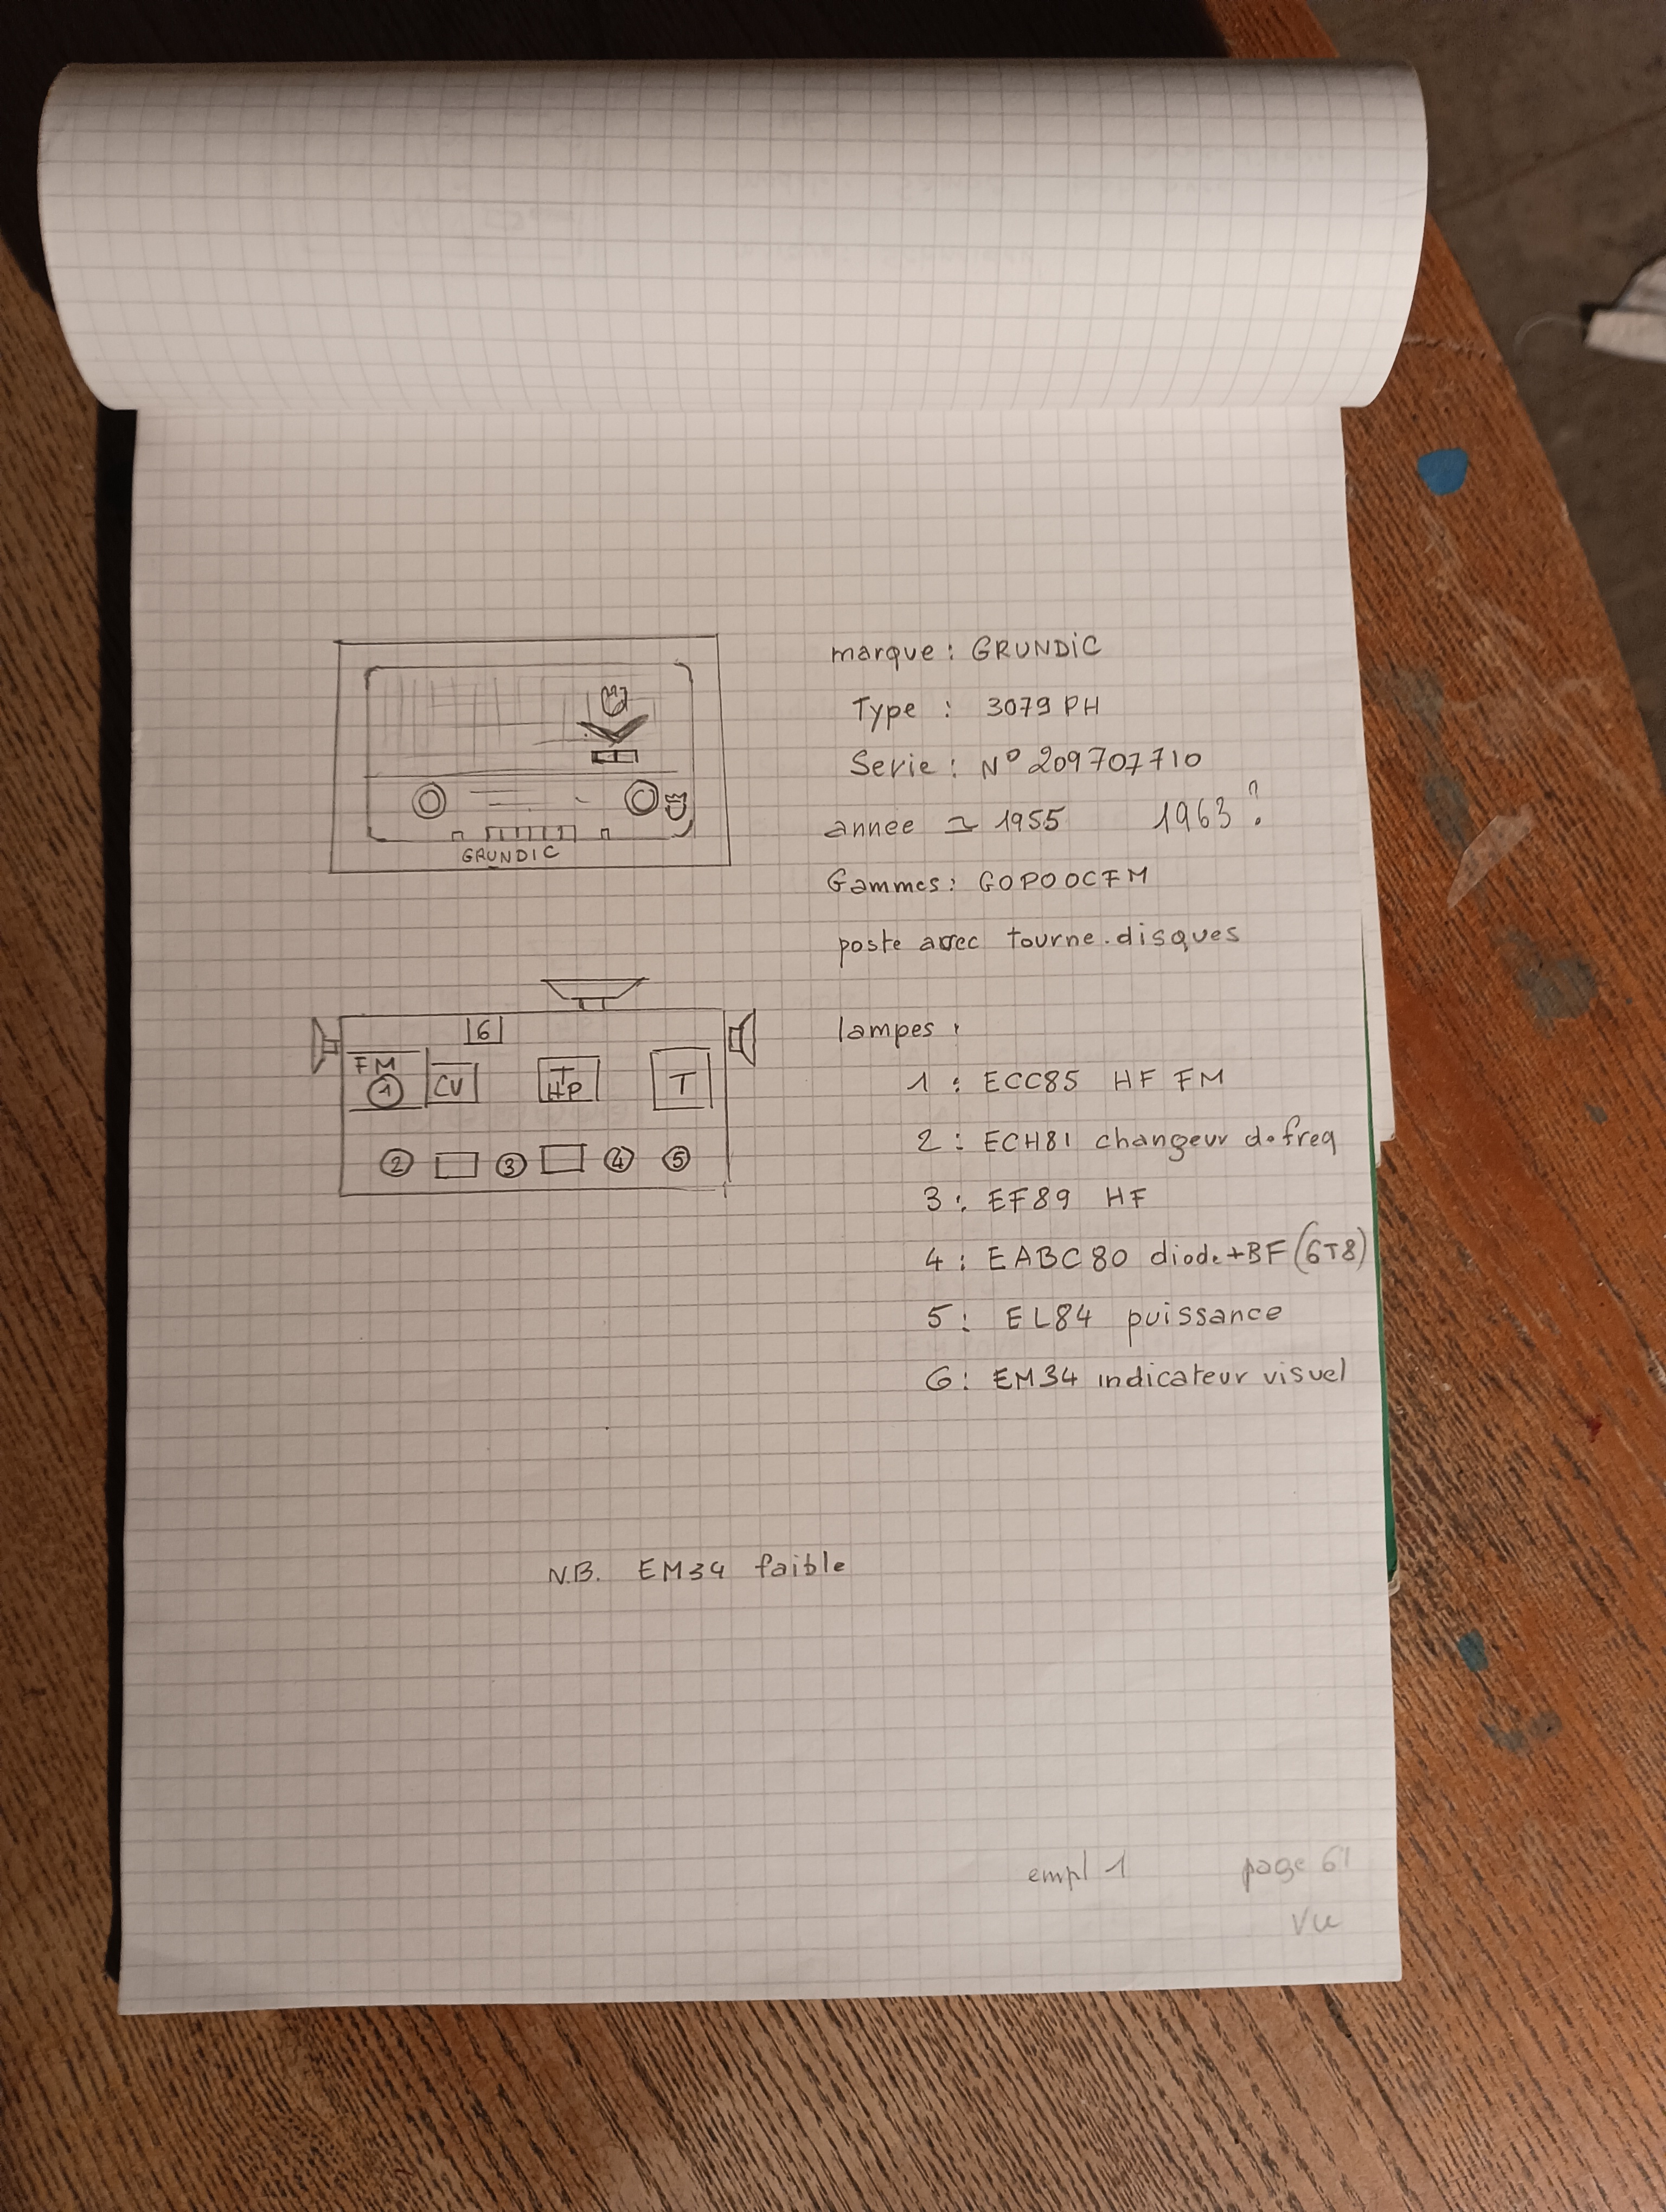 marque : GRUNDIC
Type : 3079 PH
Serie : N° 209707710
annee ≃ 1955 1963 ?
Gammes : GOPOOCFM
poste avec tourne.disques
GRUNDIC
lampes :
1 : ECC85 HF FM
2 : ECH81 changeur de freq
3 : EF89 HF
4 : EABC80 diode+BF (6T8)
5 : EL84 puissance
6 : EM34 indicateur visuel
6
FM
1
CV
T
HP
T
2 3 4 5
N.B. EM34 faible
empl 1 page 61
Vu